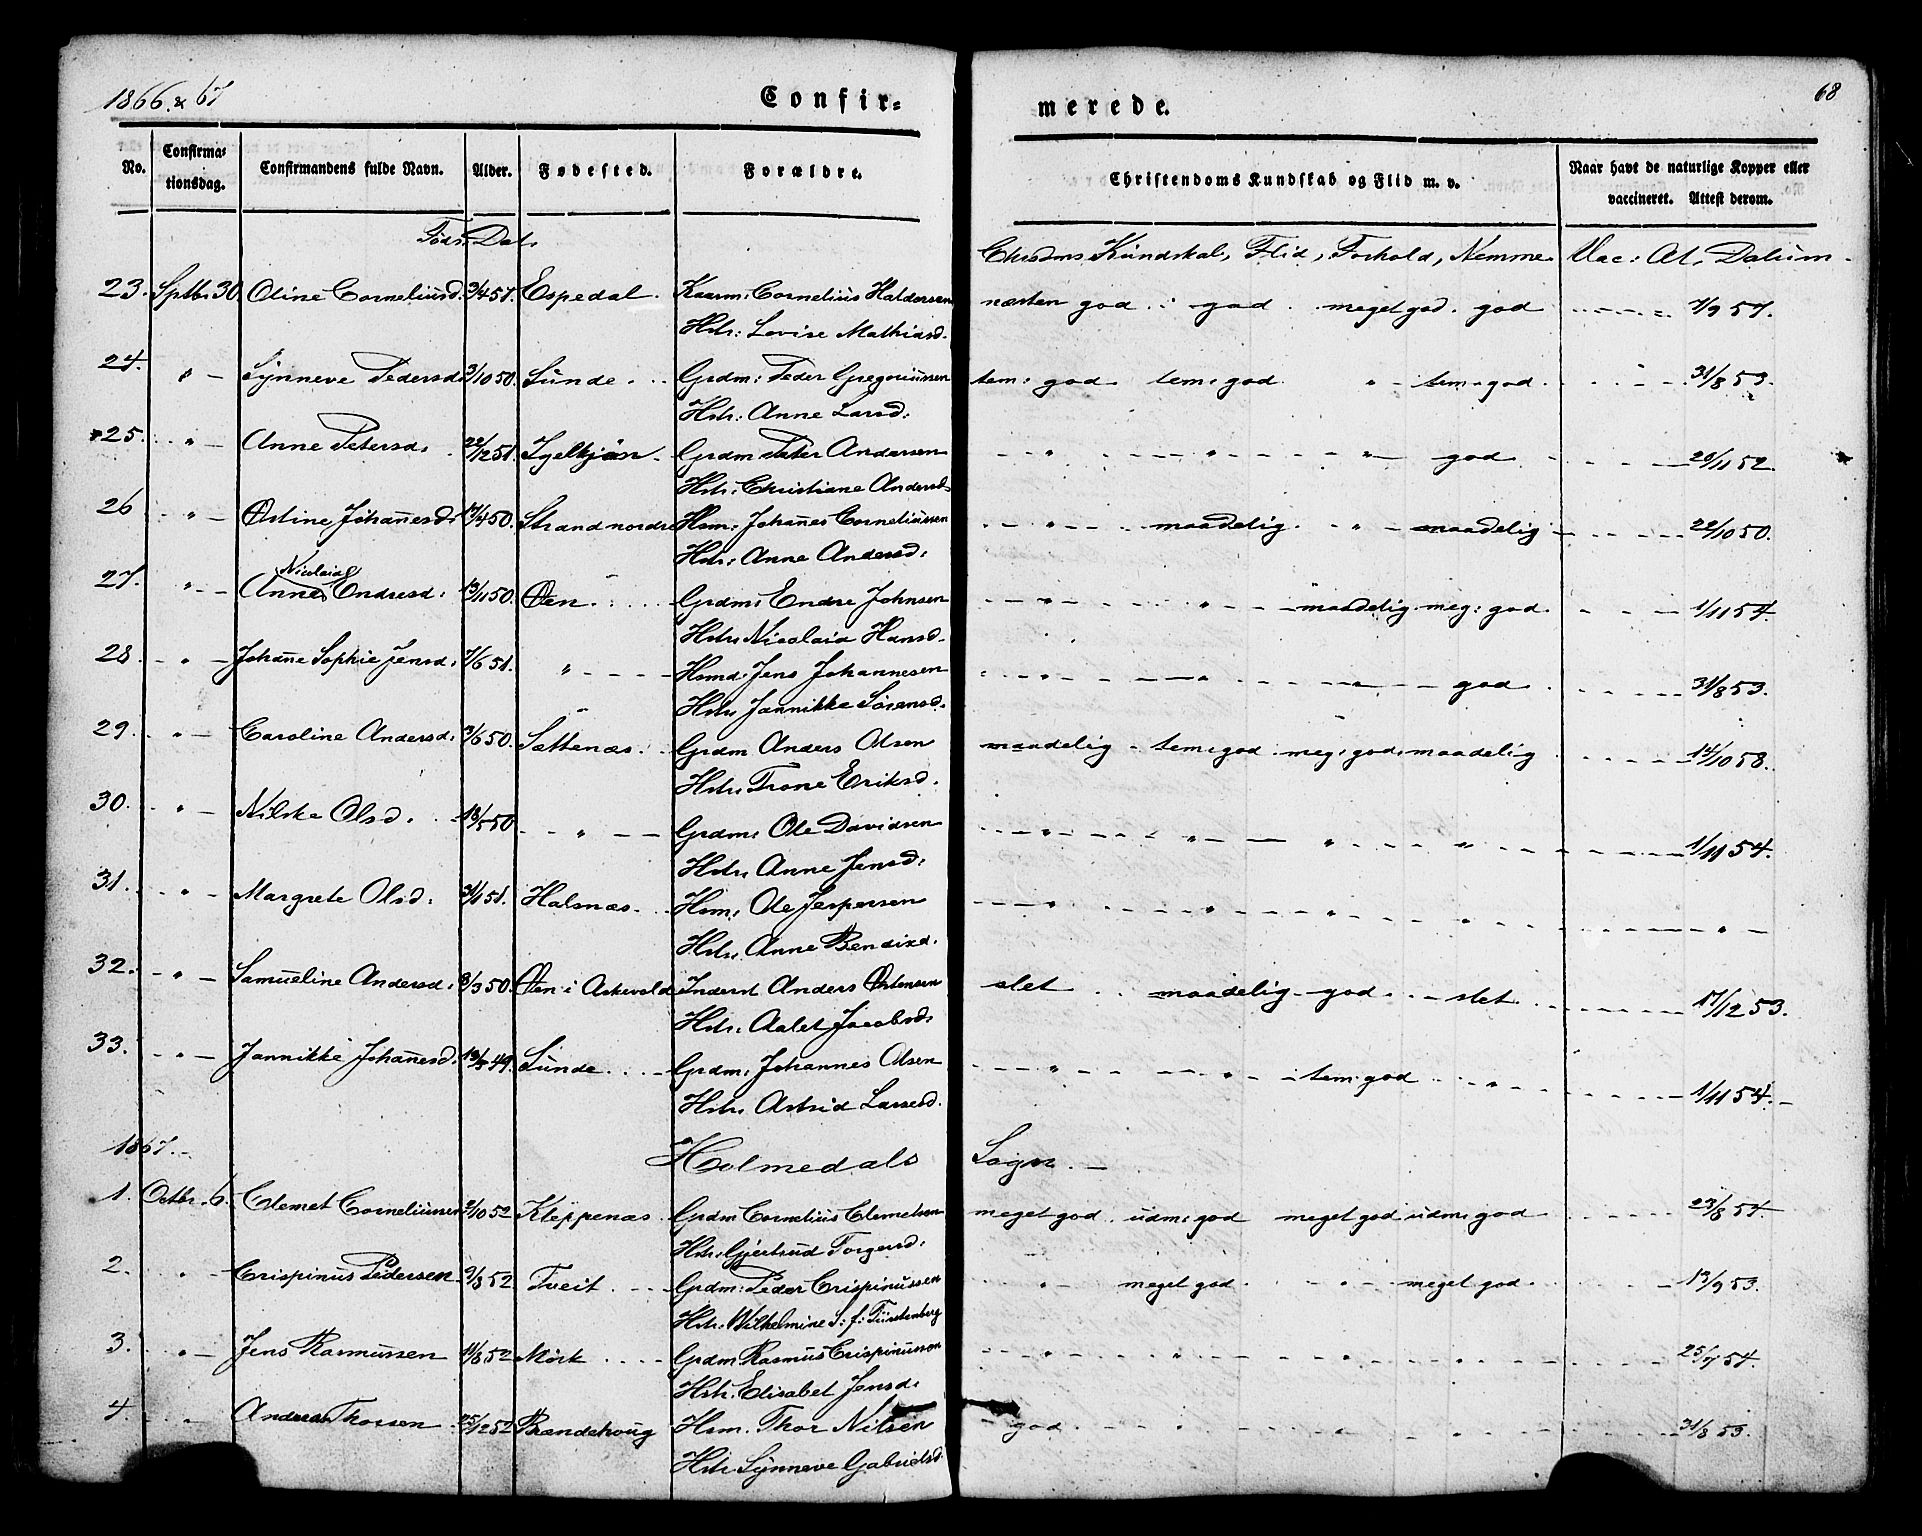 1866 & 67 Confir= merede. 68
No. Confirma= tionsdag. Confirmandens fulde Navn. Alder. Fødested. Forældre. Christendoms Kundskab og Flid m. v. Naar havt de naturlige Kopper eller vaccineret. Attest derom.
Føds: Dat. Chrdms Kundskab, Flid, Forhold, Nemme. Vac: At. Datum.
23. Sptbr 30 Oline Corneliusd. 3/4 51. Espedal. Kaarm: Cornelius Haldorsen næsten god. god. meget god. god 7/9 57.
Hstr: Lovise Mathiasd.
24. " Synneve Pedersd. 3/10 50. Sunde. Grdm: Peder Gregoriussen tem: god tem: god. " tem: god. 31/8 53.
Hstr: Anne Larsd:
25. " Anne Petersd. 22/12 51. Igelkjøn. Grdm Peter Andersen " " " god 20/11 52
Hstr: Christiane Andersd.
26 " Ostine Johanesd. 17/4 50. Strand nordre Hsm: Johanes Corneliussen " maadelig. " maadelig 22/10 50.
Hstr: Anne Andersd:
27. " Anne Nicolaia Endresd: 13/11 50. Øen. Grdm: Endre Johnsen " " maadelig. meg: god. 1/11 54.
Hstr: Nicolaia Hansd.
28 " Johane Sophie Jensd: 7/6 51. " Hsmd: Jens Johannesen " " " god 31/8 53.
Hstr Jannikke Sørensd.
29. " Caroline Andersd: 3/6 50. Sættenæs. Grdm Anders Olsen maadelig tem: god. meg: god. maadelig 14/10 58.
Hstr: Trone Eriksd.
30. " Nilske Olsd. 18/5 50 " Grdm: Ole Davidsen " " " " 1/11 54.
Hstr: Anne Jensd:
31. " Margrete Olsd: 31/1 51. Halsnæs. Hsm: Ole Jespersen " " " " "
Hstr: Anne Bendixd.
32. " Samueline Andersd: 8/3 50. Øen i Askevold Inderst Anders Østensen slet maadelig god. slet 17/12 53.
Hstr: Aalet Jacobsd:
33. " Jannikke Johanesd. 49. Sunde. Grdm: Johannes Olsen " " tem: god " 1/11 54.
Hstr: Astrid Larsesd.
1867. Holmedals Sogn.
1. Octbr. 6. Clemet Corneliussen 2/10 52 Kleppenæs. Grdm Cornelius Clemetsen meget god. udm: god meget god udm: god 23/8 54.
Hstr: Gjertrud Torgersd:
2. " Crispinus Pedersen 9/8 52 Tveit. Grdm: Peder Crispinussen " meget god. " meget god. 13/9 53.
Hstr: Wilhelmine S: f: Fürstenberg
3. " Jens Rasmussen 11/8 52 Mörk Grdm Rasmus Crispinussen " " " " 25/7 54.
Hstr. Elisabet Jensd.
4. " Anders Thorsen 25/12 52 Brændehoug Hsm. Thor Nilsen god. " " " 31/8 53.
Hstr Synneve Gabrielsd.